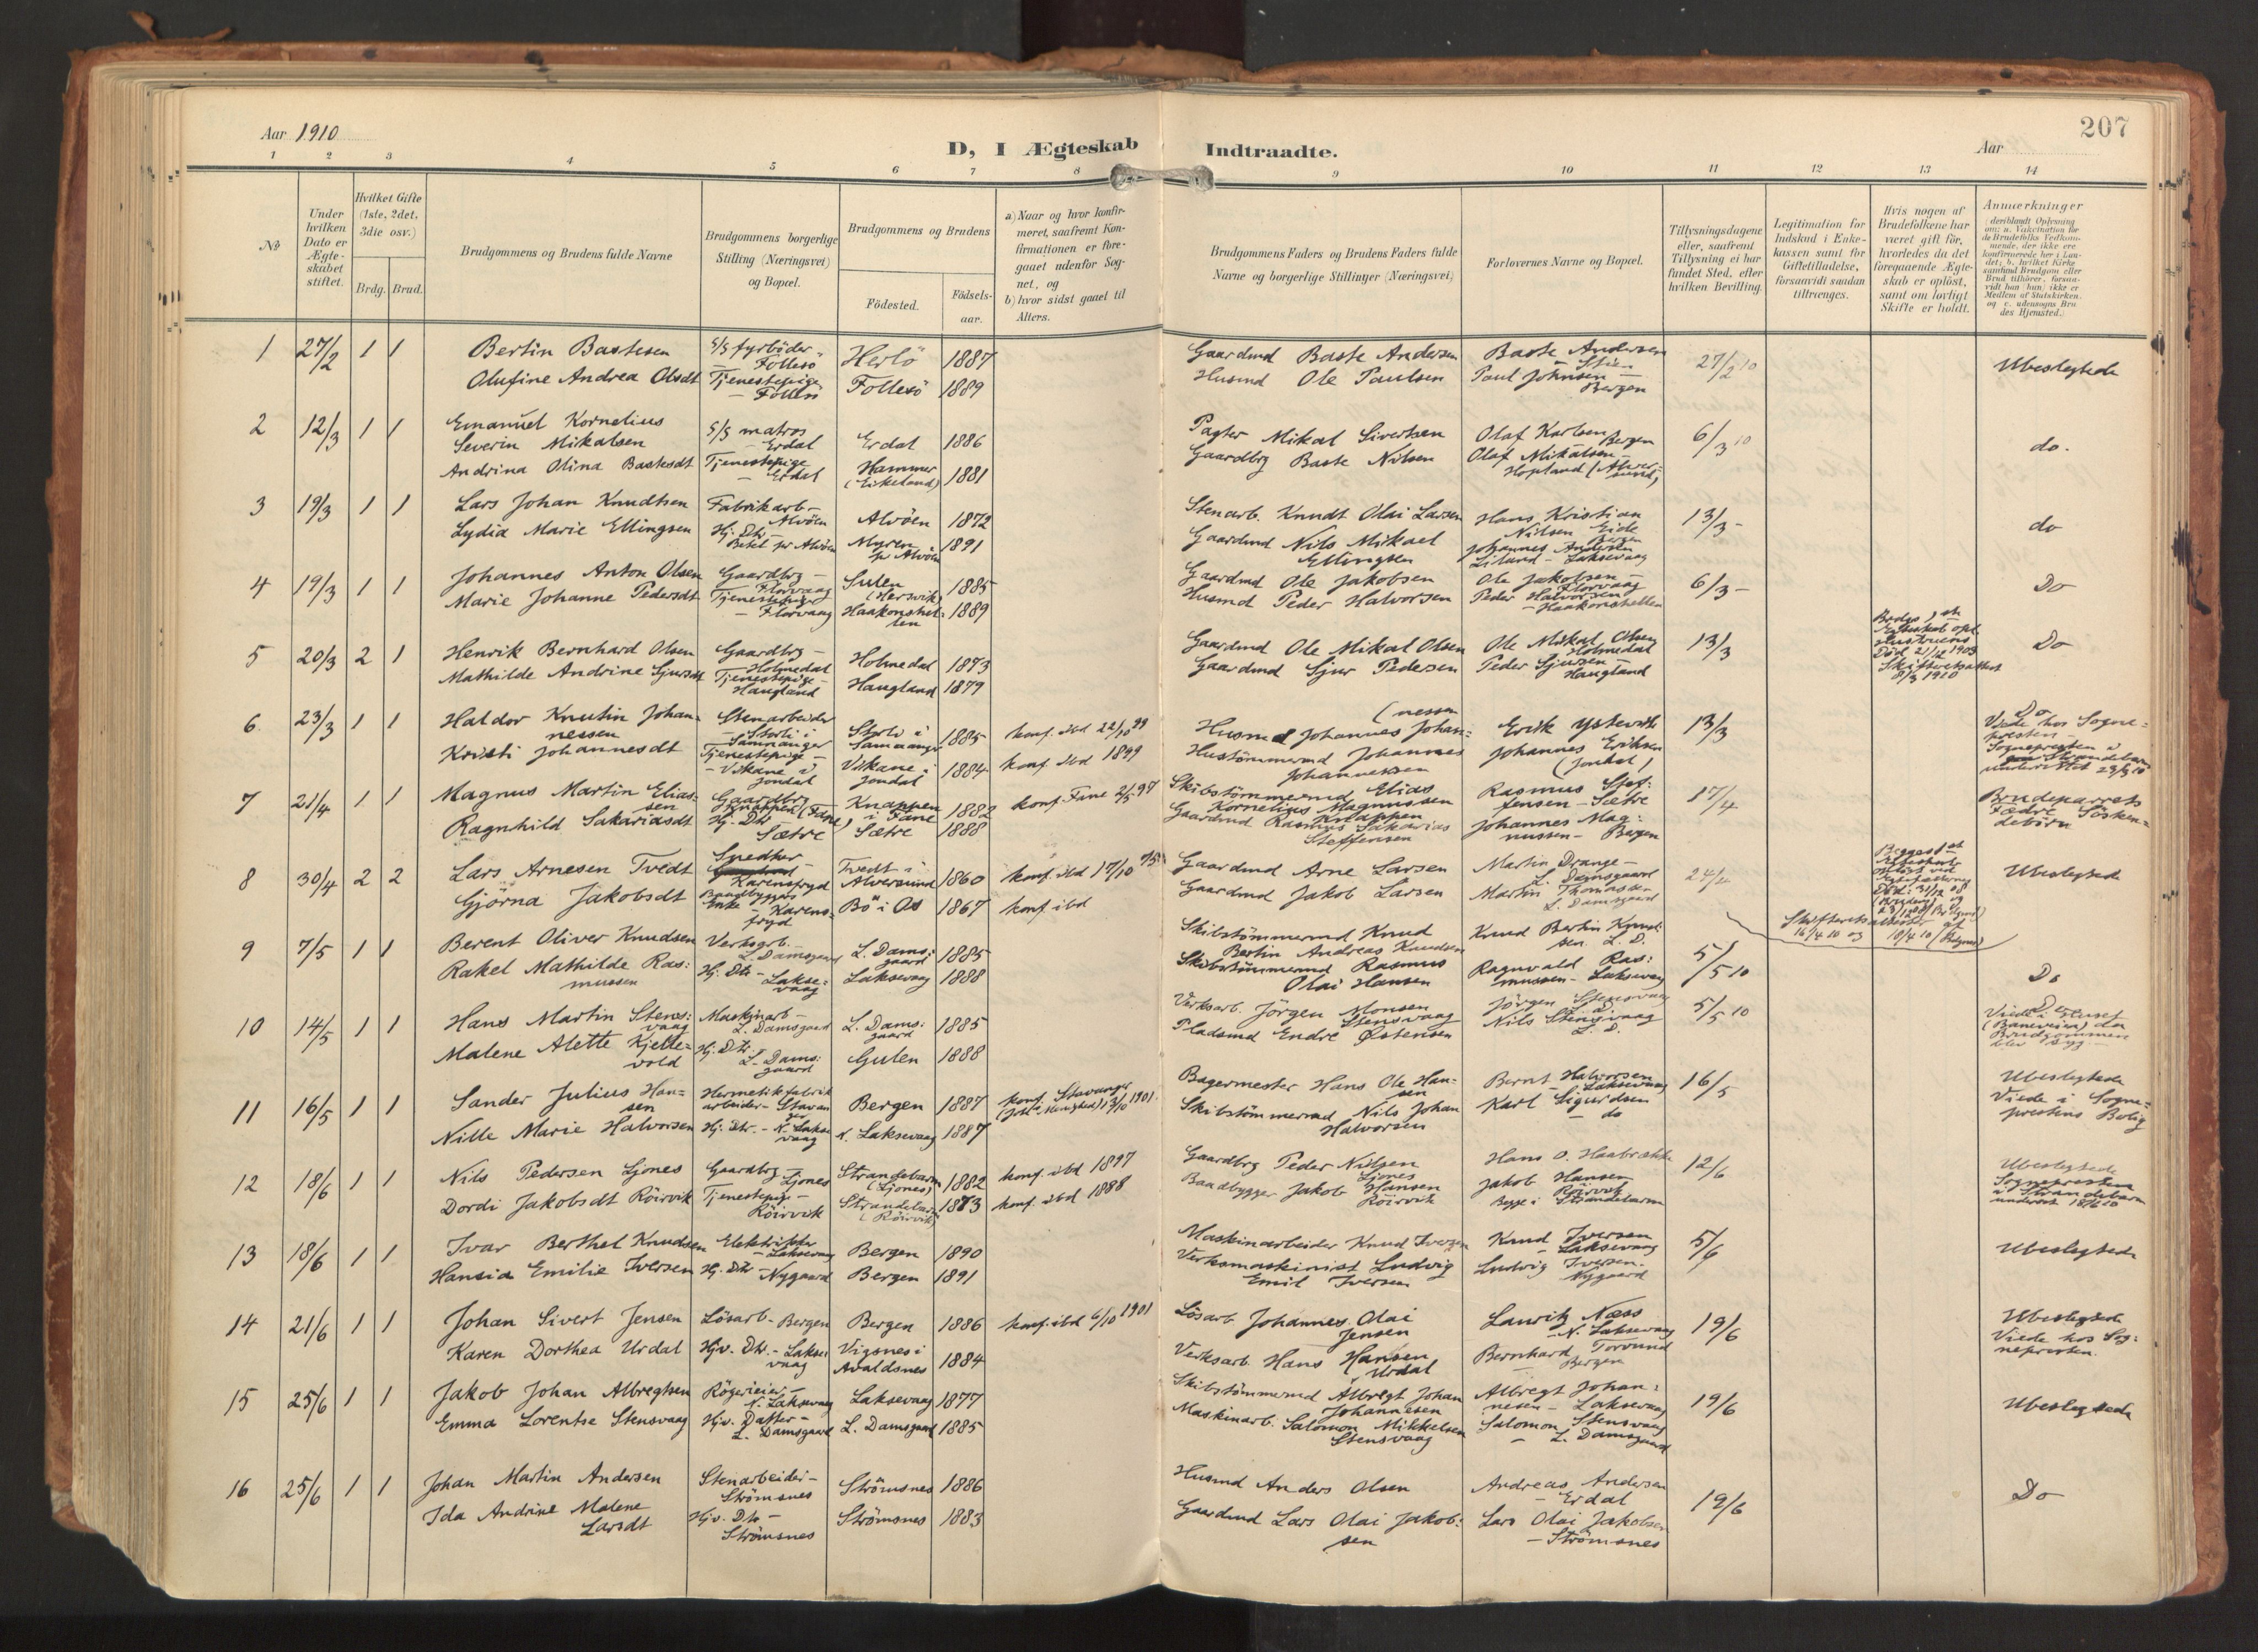 Aar 1910
D, I Ægteskab Indtraadte.
Aar
207
1 2 3 4 5 6 7 8 9 10 11 12 13 14
No
Under hvilken Dato er Ægteskabet stiftet.
Hvilket Gifte (1ste, 2det, 3die osv.)
Brdg. Brud.
Brudgommens og Brudens fulde Navne
Brudgommens borgerlige Stilling (Næringsvei) og Bopæl.
Brudgommens og Brudens
Födested.
Födsels-aar.
a) Naar og hvor konfirmeret, saafremt Konfirmationen er foregaaet udenfor Sognet, og
b) hvor sidst gaaet til Alters.
Brudgommens Faders og Brudens Faders fulde Navne og borgerlige Stillinger (Næringsvei)
Forlovernes Navne og Bopæl.
Tillysningsdagene eller, saafremt Tillysning ei har fundet Sted, efter hvilken Bevilling.
Legitimation for Indskud i Enkekassen samt for Giftetilladelse, forsaavidt saadan tiltrænges.
Hvis nogen af Brudefolkene har været gift för, hvorledes da det foregaaende Ægteskab er oplöst, samt om lovligt Skifte er holdt.
Anmærkninger (deriblandt Oplysning om: a. Vakcination for de Brudefolks Vedkommende, der ikke ere konfirmerede her i Landet; b. hvilket Kirkesamfund Brudgom eller Brud tilhörer, forsaavidt han (hun) ikke er Medlem af Statskirken. og c. udensogns Brudes Hjemsted.)
1 27/2 1 1 Bertin Bastesen S/S fyrböder – Follesö Herlö 1887 Gaardmd Baste Andersen Baste Andersen Stien 27/2 10 Ubeslegtede
Olufine Andrea Olsdt Tjenestepige – Folles Follesö 1889 Husmd Ole Paulsen Paul Johnsen – Bergen
2 12/3 1 1 Emanuel Kornelius Severin Mikalsen S/S matros – Erdal Erdal 1886 Pagter Mikal Sivertsen Olaf Karlsen Bergen 6/3 10 do.
Andrina Olina Bastesdt Tjenestepige – Erdal Hammer (Eikeland) 1881 Gaardbrg Baste Nilsen Olaf Mikalsen – Hopland (Alversund)
3 19/3 1 1 Lars Johan Knudtsen Fabrikarb – Alvöen Alvöen 1872 Stenarb. Knudt Olai Larsen Hans Kristian Nilsen Eide Bergen 13/3 – do
Lydia Marie Ellingsen Hj. Dtr – Betel pr Alvöen Myren pr Alvöen 1891 Gaardmd Nils Mikael Ellingsen Johannes Andersen Liland – Laksevaag
4 19/3 1 1 Johannes Anton Olsen Gaardbrg – Florvaag Sulen (Hersvik) 1885 Gaardmd Ole Jakobsen Ole Jakobsen – Florvaag 6/3 – Do
Marie Johanne Pedersdt Tjenestepige – Florvaag Haakonshellen 1889 Husmd Peder Halvorsen Peder Halvorsen – Haakonshellen
5 20/3 2 1 Henrik Bernhard Olsen Gaardbrg – Holmedal Holmedal 1873 Gaardmd Ole Mikal Olsen Ole Mikal Olsen Holmedal 13/3 Do
Mathilde Andrine Sjursdt Tjenestepige – Haugland Haugland 1879 Gaardmd Sjur Pedersen Peder Sjursen – Haugland
Hustruens Död 21/12 1903 Skifteretsattest 8/3 1910
6 23/3 1 1 Haldor Knutin Johannessen Stenarbeider – Storli i Samnanger Storli i Samnanger 1885 konf. ibd 22/10 99 Husmd Johannes Johannessen Erik Ystevik 13/3 Do
Kristi Johannesdt Tjenestepige – Vikane i Jondal Vikane i Jondal 1884 konf. ibd 1899 Hustömmermd Johannes Johannessen Johannes Eriksen (Jondal)
Viede hos Sognepresten – Sognepresten i Strandebarm underrettet 23/3 10
7 21/4 1 1 Magnus Martin Eliassen Gaardbrg Knappen (Fane) Knappen i Fane 1882 konf. Fane 2/5 97 Skibstömmermd Elias Kornelius Magnussen Knappen Rasmus Steffensen – Sætre 17/4 Brudeparrets Fædre Söskendebörn
Ragnhild Sakariasdt Hj. Dtr Sætre Sætre 1888 Gaardmd Rasmus Sakarias Steffensen Johannes Magnussen – Bergen
8 30/4 2 2 Lars Arnesen Tvedt Snedker – Karensfryd Tvedt i Alversund 1860 konf. ibd 17/10 75 Gaardmd Arne Larsen Martin Drange – L. Damsgaard 24/4 Ubeslegtede
Gjörna Jakobsdt Baadbyggers Enke – Karensfryd Bö i Os 1867 konf ibd Gaardmd Jakob Larsen Martin Thomassen L. Damsgaard
Skifteretsattester af 16/4 10 og 18/4 10 (Brdgom)
9 7/5 1 1 Berent Oliver Knudsen Verksarb. – L. Damsgaard L. Damsgaard 1885 Skibstömmermd Knud Bertin Andreas Knudsen Knud Bertin Knudsen L. D. 5/5 10 Do
Rakel Mathilde Rasmussen Hj. Dtr – Laksevaag Laksevaag 1888 Skibstömmermd Rasmus Olai Hansen Ragnvald Rasmussen – Laksevaag
10 14/5 1 1 Hans Martin Stensvaag Maskinarb – L. Damsgaard L. Damsgaard 1885 Verksarb. Jörgen Monsen Stensvaag Jörgen Stensvaag L. d. 5/5 10 Do
Malene Alette Kjellevold Hj. Dtr. L. Damsgaard Gulen 1888 Pladsmd Endre Østensen Nils Stensvaag L. D.
Viede i Huset (Baneveien) da Brudgommen blev syg –
11 16/5 1 1 Sander Julius Hansen Hermetikfabrikarbeider – Stavanger Bergen 1887 konf. Stavanger 13/10 1901 Bagermester Hans Ole Hansen Bernt Halvorsen – Laksevaag 16/5 Ubeslegtede
Nille Marie Halvorsen Hj. Dtr. – N. Laksevaag N. Laksevaag 1887 Skibstömmermd Nils Johan Halvorsen Karl Sigurdsen – do Viede i Sogneprestens Bolig
12 18/6 1 1 Nils Pedersen Ljones Gaardbrg – Ljones Strandebarm (Ljones) 1882 konf. ibd 1897 Gaardbrg Peder Nilsen Ljones Hans O. Haabrekke 12/6 Ubeslegtede
Dordi Jakobsdt Röirvik Tjenestepige – Röirvik Strandebarm (Röirvik) 1873 konf. ibd 1888 Baadbygger Jakob Hansen Röirvik Jakob Hansen Röirvik Begge i Strandebarm
Sognepresten i Strandebarm underret 18/6 10
13 18/6 1 1 Ivar Berthel Knudsen Elektriker – Laksevaag Bergen 1890 Maskinarbeider Knud Iversen Knud Iversen – Laksevaag 5/6 Ubeslegtede
Hansia Emilie Iversen Hj. Dtr – Nygaard Bergen 1891 Verksmaskinist Ludvig Emil Iversen Ludvig Iversen. Nygaard
14 21/6 1 1 Johan Sivert Jensen Lösarb – Bergen Bergen 1886 konf. ibd 6/10 1901 Lösarb Johannes Olai Jensen Lauritz Næss – N. Laksevaag 19/6 Ubeslegtede
Karen Dorthea Urdal Hjv. Dtr. – Laksevaag Vigsnes i Avaldsnes 1884 Verksarb. Hans Hansen Urdal Bernhard Torvund – Bergen Viede hos Sognepresten.
15 25/6 1 1 Jakob Johan Albregtsen Rögerieier – N. Laksevaag Laksevaag 1877 Skibstömmermd Albregt Johan Johannesen Albregt Johannesen – Laksevaag 19/6 Ubeslegtede
Emma Lorentse Stensvaag Hjv. Datter – L. Damsgaard L. Damsgaard 1885 Maskinarb. Salomon Mikkelsen Stensvaag Salomon Stensvaag – L. Damsgaard
16 25/6 1 1 Johan Martin Andersen Stenarbeider – Strömsnes Strömsnes 1886 Husmd Anders Olsen Andreas Andersen – Erdal 19/6 Do
Ida Andrine Malene Larsdt Hjv. Dtr – Strömsnes Strömsnes 1883 Gaardmd Lars Olai Jakobsen Lars Olai Jakobsen – Strömsnes